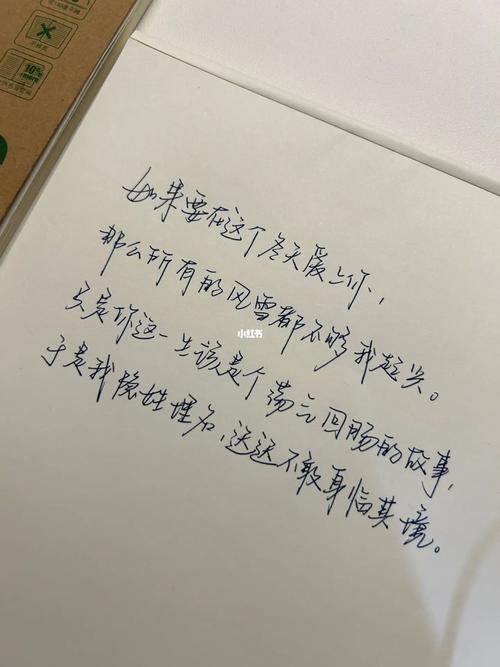 10%
more
如果要在这个冬天爱上你,
那么所有的风雪都不够我起兴。
小红书
只是你这一生该是个荡气回肠的故事,
于是我隐姓埋名,迟迟不敢身临其境。